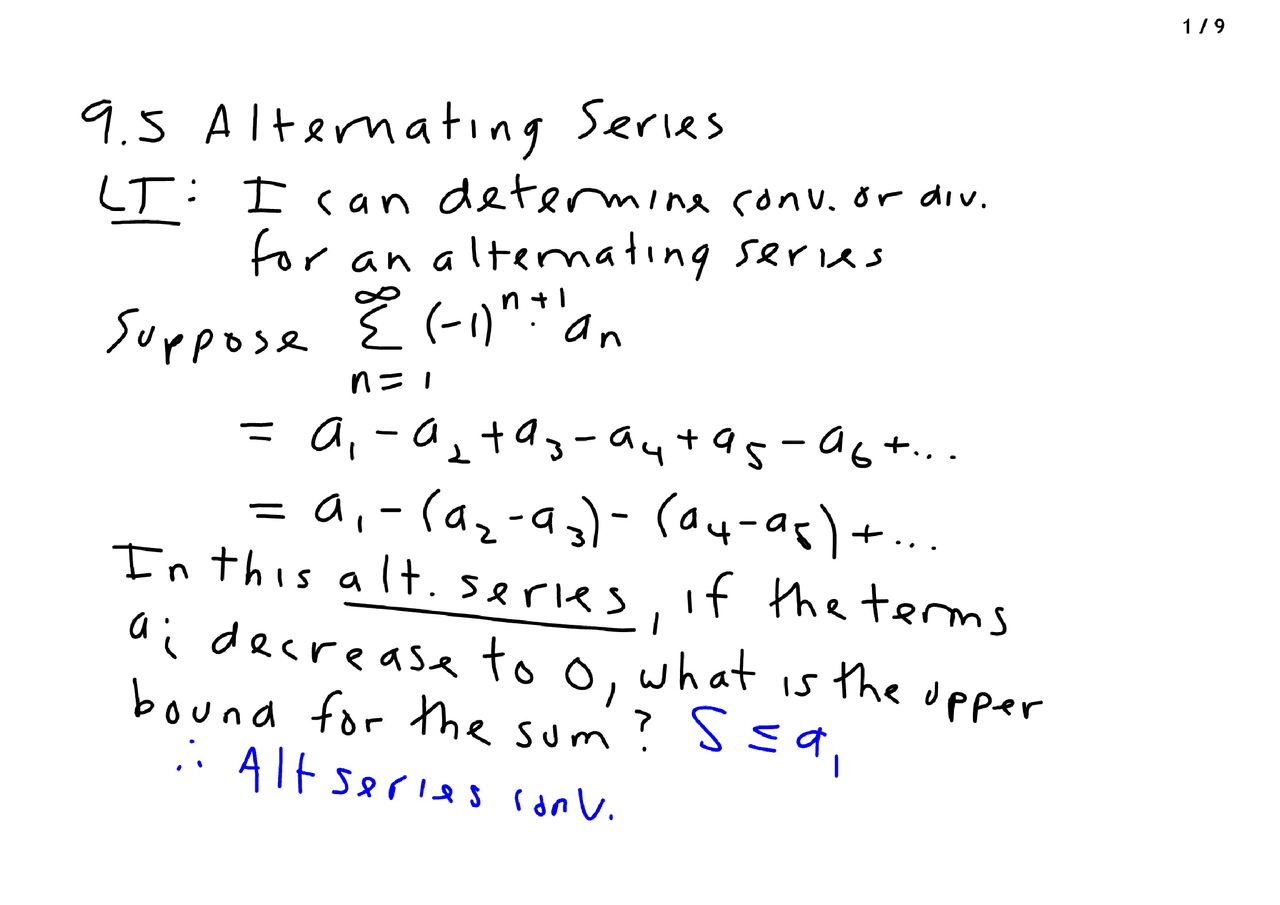 1 / 9
9.5 Alternating Series
LT: I can determine conv. or div.
for an alternating series
Suppose ∞ Σ n=1 (-1)^{n+1} a_n
= a_1 - a_2 + a_3 - a_4 + a_5 - a_6 + ...
= a_1 - (a_2 - a_3) - (a_4 - a_5) + ...
In this alt. series, if the terms
a_i decrease to 0, what is the upper
bound for the sum? S ≤ a_1
∴ Alt series conv.